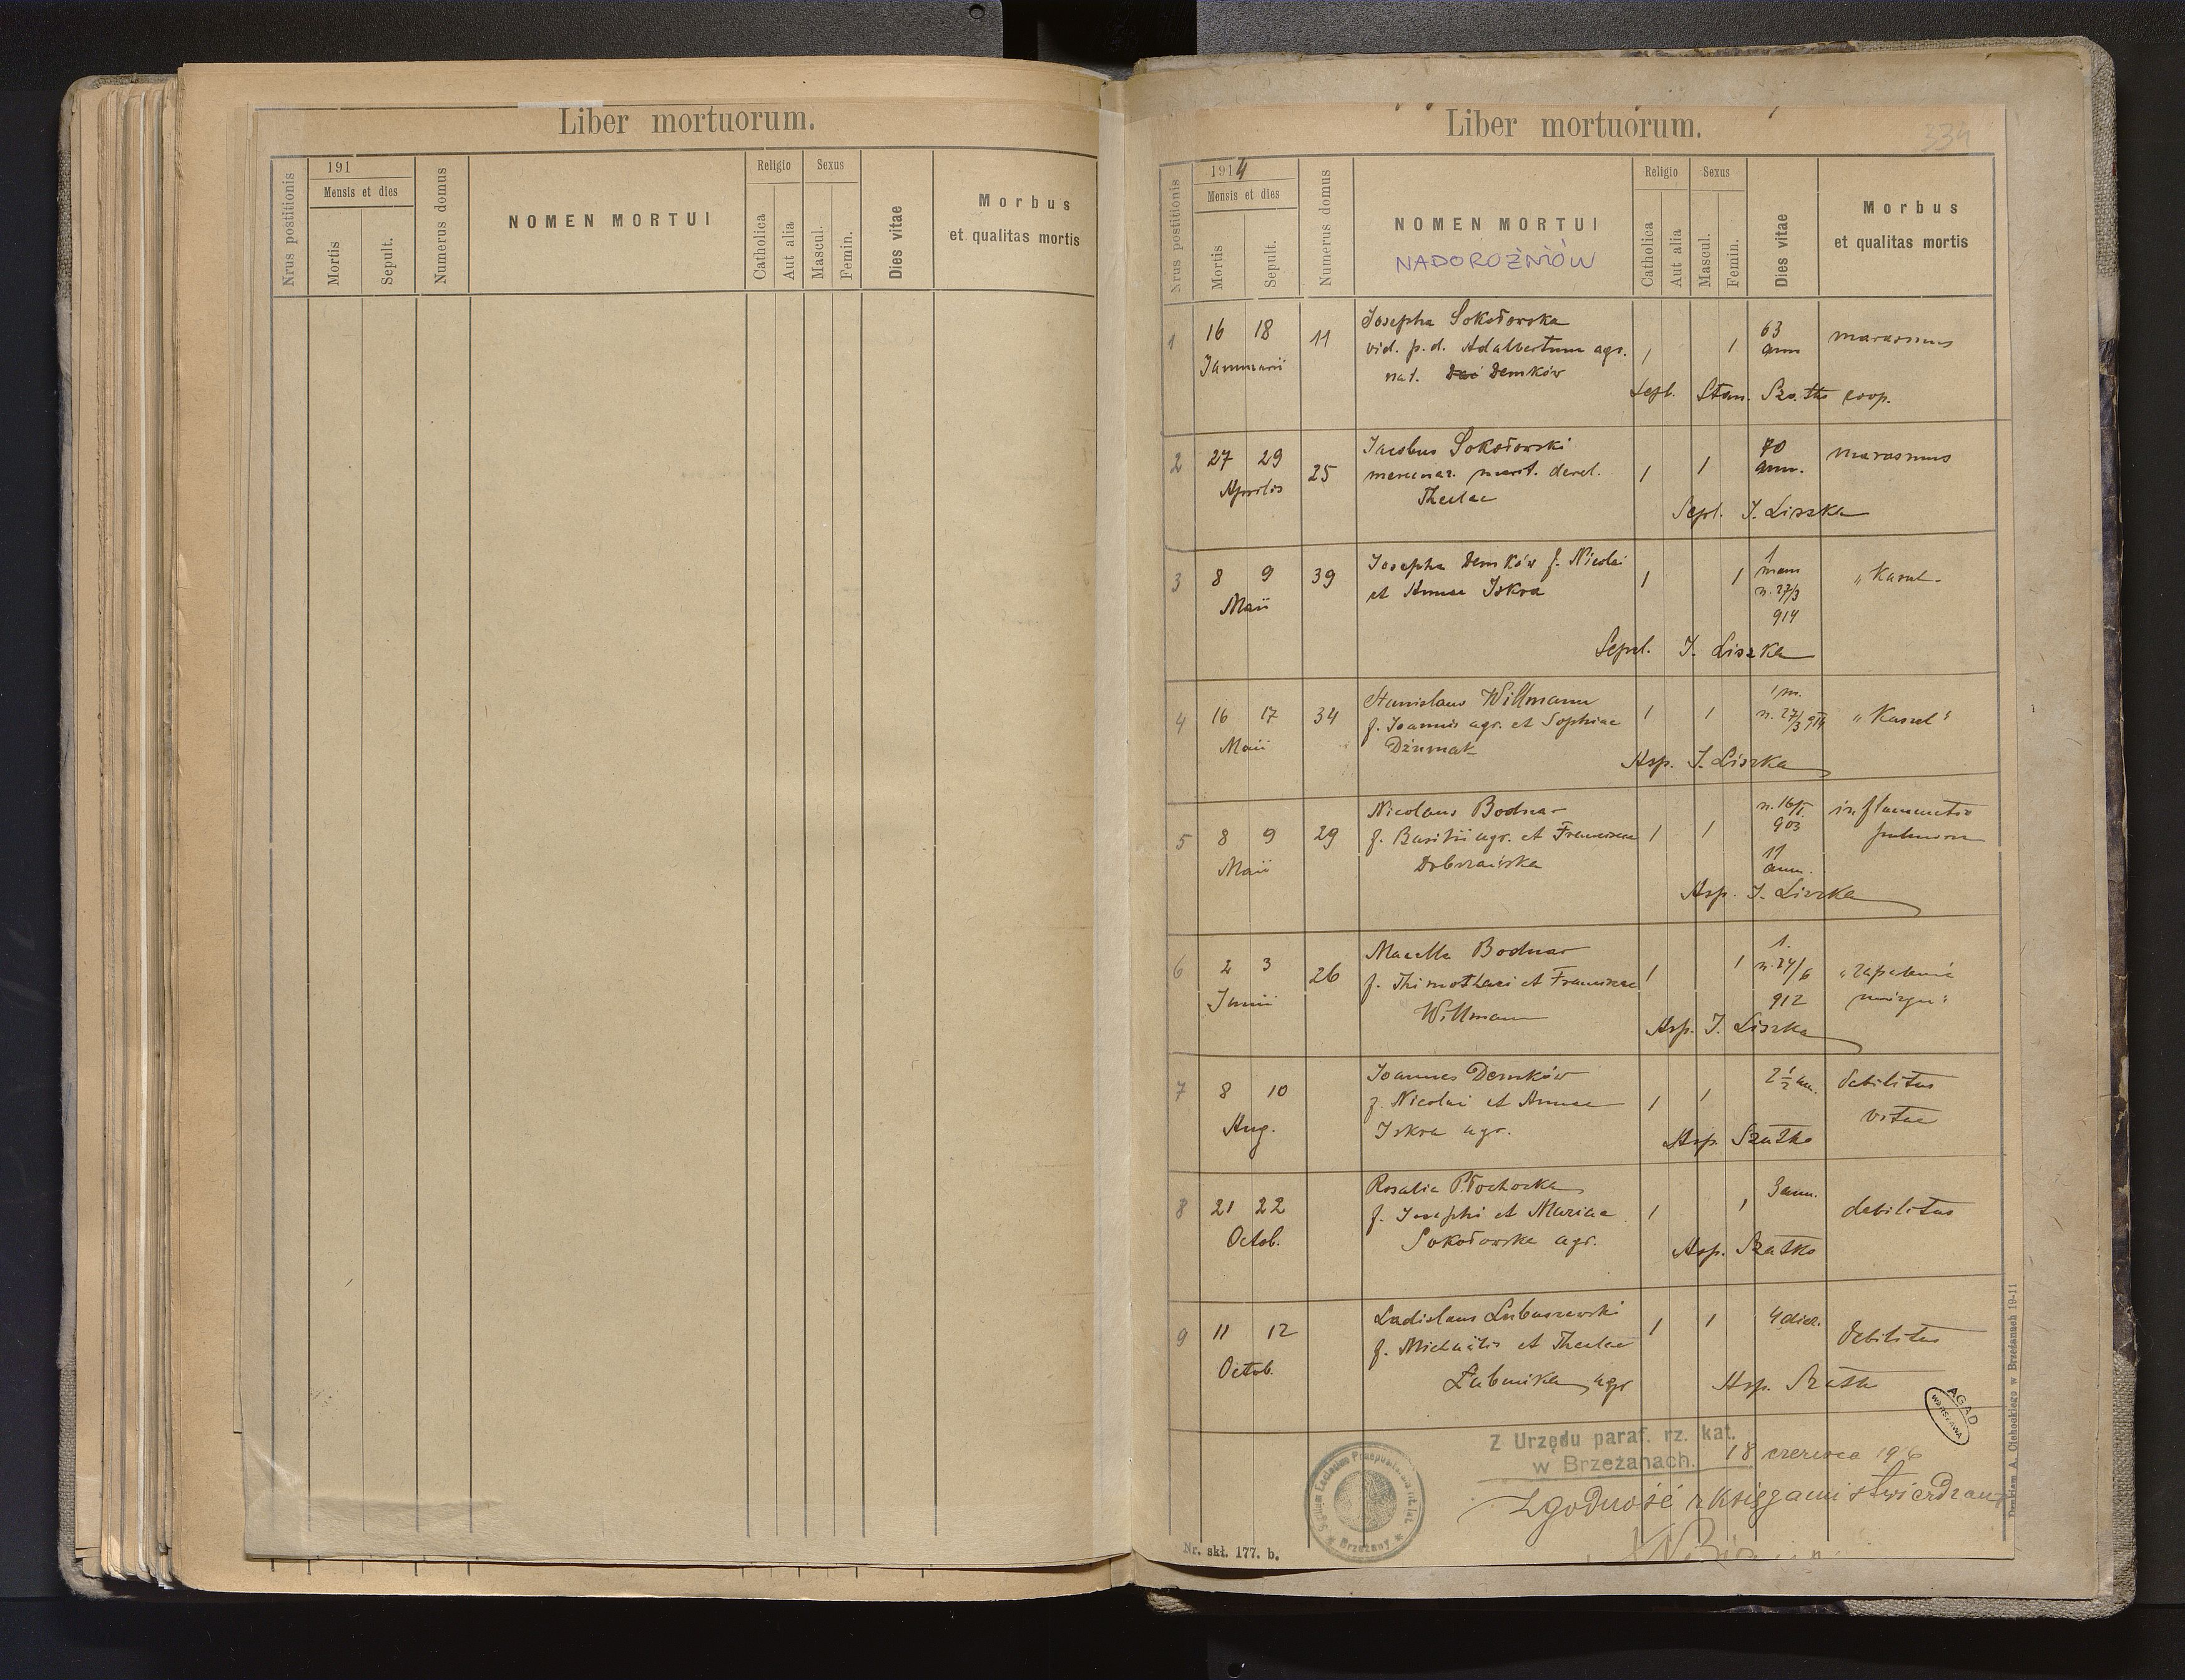 Liber mortuorum.
191
Mensis et dies
Nrus postitionis
Mortis
Sepult.
Numerus domus
NOMEN MORTUI
Religio
Catholica
Aut alia
Sexus
Mascul.
Femin.
Dies vitae
Morbus
et qualitas mortis
Liber mortuorum.
334
1914
Mensis et dies
Nrus postitionis
Mortis
Sepult.
Numerus domus
NOMEN MORTUI
NADOROŻNIÓW
Religio
Catholica
Aut alia
Sexus
Mascul.
Femin.
Dies vitae
Morbus
et qualitas mortis
1 16 18 11 Josepha Sokołowska 1 1 63 marasmus
Januarii vid. p. d. Adalbertum agr. ann
nat. Demków
Sepl. Stan. coop.
2 27 29 25 Jacobus Sokołowski 1 1 70 marasmus
Aprilis mercenar. marit. derel. ann.
Theclae
Sepl. J. Liszka
3 8 9 39 Josepha Demków f. Nicolai 1 1 1 „Kaszel"
Maii et Annae Iskra mens
n. 27/3
914
Sepel. J. Liszka
4 16 17 34 Stanislaus Willmann 1 1 1 m. „Kaszel"
Maii f. Joannis agr. et Sophiae n. 27/3 914
Dżumak
Asp. J. Liszka
5 8 9 29 Nicolaus Bodnar 1 1 n. 16/I inflammatio
Maii f. Basilii agr. et Franciscae 903 pulmon
Dobrzańska 11
ann.
Asp. J. Liszka
6 2 3 26 Marcella Bodnar 1 1 1. „zapalenie
Junii f. Thimothaei et Franciscae n. 24/6 mózgu"
Willmann 912
Asp. J. Liszka
7 8 10 Joannes Demków 1 1 2 1/2 an. debilitas
Aug. f. Nicolai et Annae vitae
Iskra agr.
Asp. Szatko
8 21 22 Rosalia Płochocka 1 1 3 ann. debilitas
Octob. f. Josephi et Mariae
Sokołowska agr.
Asp. Szatko
9 11 12 Ladislaus Lubuszewski 1 1 4 dier. debilitas
Octob. f. Michaëlis et Theclae
agr
Asp.
AGAD
WARSZAWA
Z Urzędu paraf. rz. kat.
w Brzeżanach. 18 czerwca 1916
Zgodność z księgami stwierdzam
Brzeżany
Nr. skł. 177. b.
Drukiem A. Cichockiego w Brzeżanach 19-11